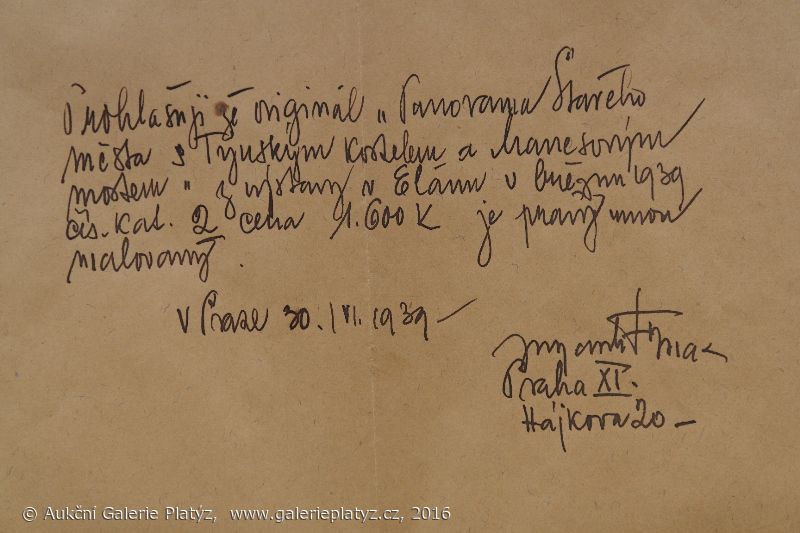 Prohlašuji že originál „Panorama Starého
města s Týnským kostelem a Manesovým
mostem" z výstavy v Elánu v březnu 1939
čís. kat. 2 cena 1.600 K je pravý mnou
malovaný.
V Praze 30./VI. 1939 –
Praha XI.
Hájkova 20 –
© Aukční Galerie Platýz, www.galerieplatyz.cz, 2016